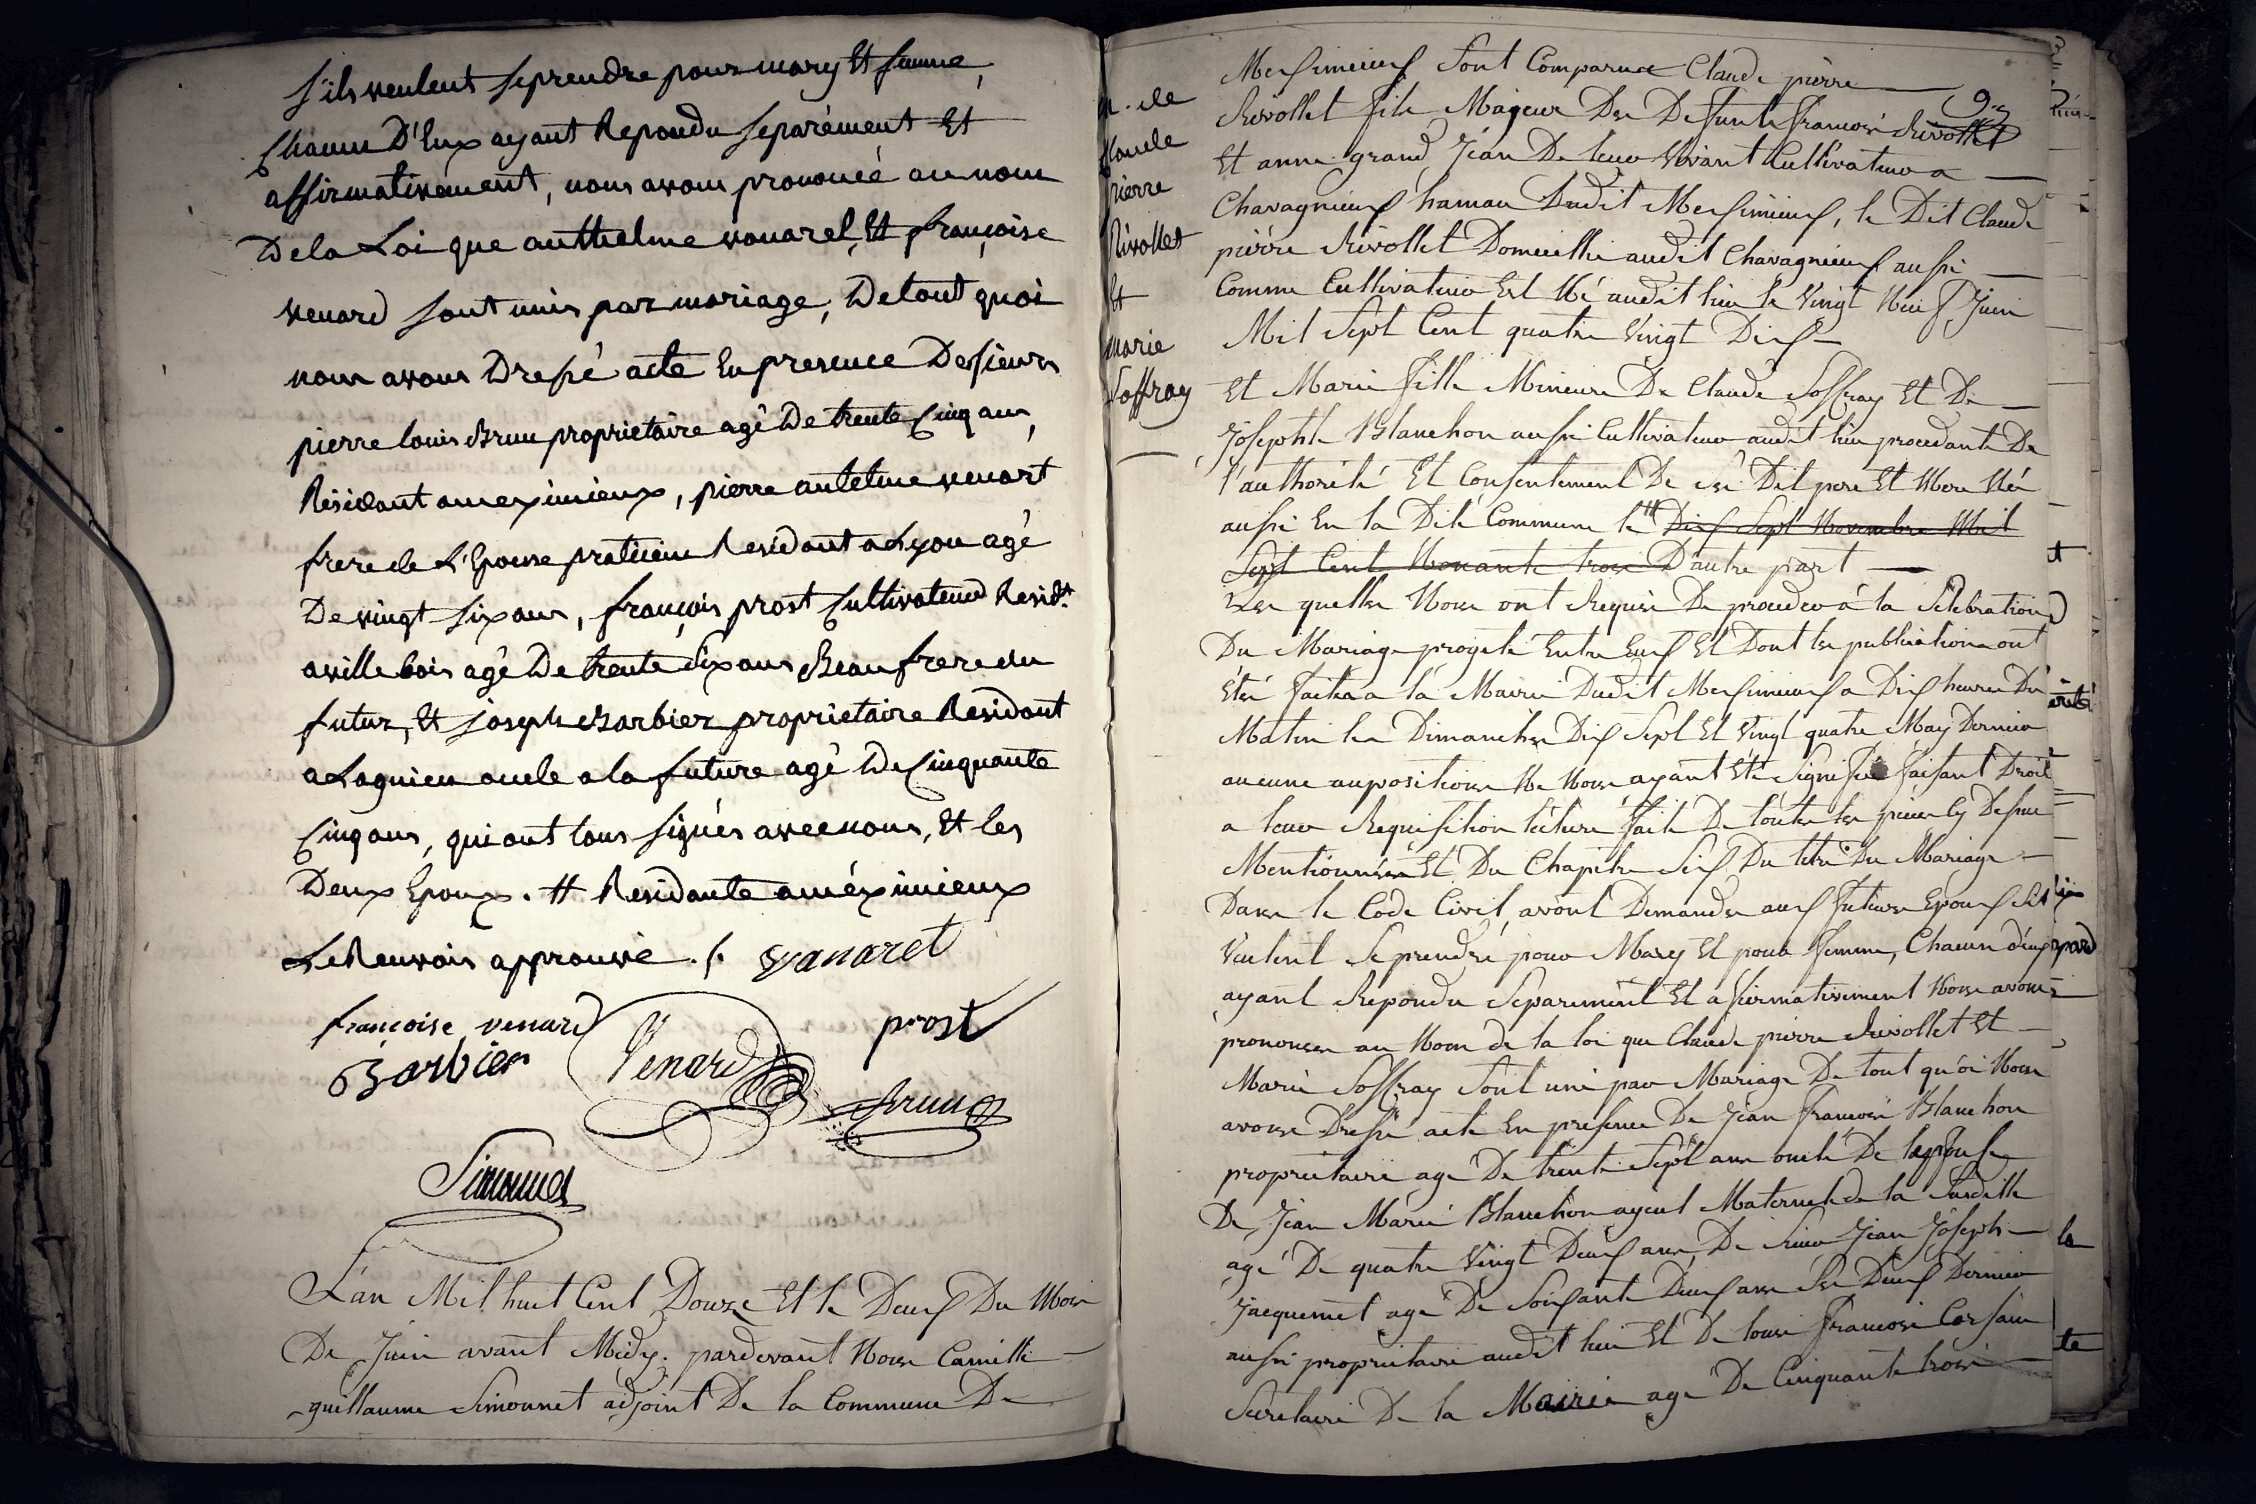 s'ils veulent se prendre pour mary Et femme,
Chacun D'Eux ayant Repondu separément Et
affirmativement, nous avons prononcé au nom
De la Loi que anthelme vanarel, Et françoise
venard sont unis par mariage, De tout quoi
nous avons Dressé acte En presence Des sieurs
pierre louis Brun proprietaire agé De trente Cinq ans,
Résidant a meximieux, pierre antelme venard
frere de L'Epouse praticien Residant a Lyon agé
De vingt six ans, françois prost Cultivateur Residt.
a villebois agé De trente Six ans Beau frere du
futur, Et joseph Barbier proprietaire Residant
a Lagnieu oncle a la future agé De Cinquante
Cinq ans, qui ont tous signés avec nous, Et les
Deux Epoux. # Residante a méximieux
Le Renvois approuvé ./. vanaret
françoise venard Venard prost
Barbier Brun
Simonnet
L'an Mil huit Cent Douze Et le Deux Du Mois
De Juin avant Midy. pardevant Nous Camille
guillaume Simonnet adjoint De la Commune De
n. de
Claude
pierre
Rivollet
Et
marie
Soffray
93
Meximieux Sont Comparus Claude pierre
Rivollet fils Majeur Des Defunts francois Rivollet
Et anne grand Jean De leur Vivant Cultivateur a
Chavagnieux hamau Dudit Meximieux, le Dit Claude
pierre Rivollet Domicillié audit Chavagnieux aussi
Comme Cultivateur Est Né audit lieu le Vingt Neuf Juin
Mil Sept Cent quatre Vingt Dix
Et Marie fille Mineure De Claude Soffray Et De
Josephte Blanchon aussi Cultivateur audit lieu procedante De
l'authorité Et Consentement De ses Dit pere Et Mere Née
aussi En la Dite Commune le # Dix Sept Novembre Mil
Sept Cent Nonante trois D'autre part
Les quelles Nous ont Requis De proceder à la Celebration
Du Mariage progeté Entre Eux Et Dont les publications ont
Été faites a la Mairie Dudit Meximieux a Dix heures Du
Matin les Dimanches Dix Sept Et Vingt quatre May Dernier
aucune auposition Ne Nous ayant Été Signifiée faisant Droit
a leur Requisition lecture faite De toutes les pieces Cy Dessus
Mentionnées Et Du Chapitre Six Du titre Du Mariage
Dans le Code Civil, avons Demandes aux futurs Epoux Sils
Veulent Se prendre pour Mary Et pour femme, Chacun d'eux
ayant Repondu Separement Et affirmativement Nous avons
prononcer au Nom de la loi que Claude pierre Rivollet Et
Marie Soffray Sont unis par Mariage De tout quoi Nous
avons Dressé acte En presence De Jean francois Blanchon
propriétaire agé De trente Sept ans oncle De lepouse
De Jean Marie Blanchon ayeul Maternele de la Susditte
agé De quatre Vingt Deux ans, De Sieur Jean Joseph
Jacquemet agé De Soixante Deux ans Les Deux Dernier
aussi propriétaire audit lieu Et De louis francois
Secretaire De la Mairie agé De Cinquante trois